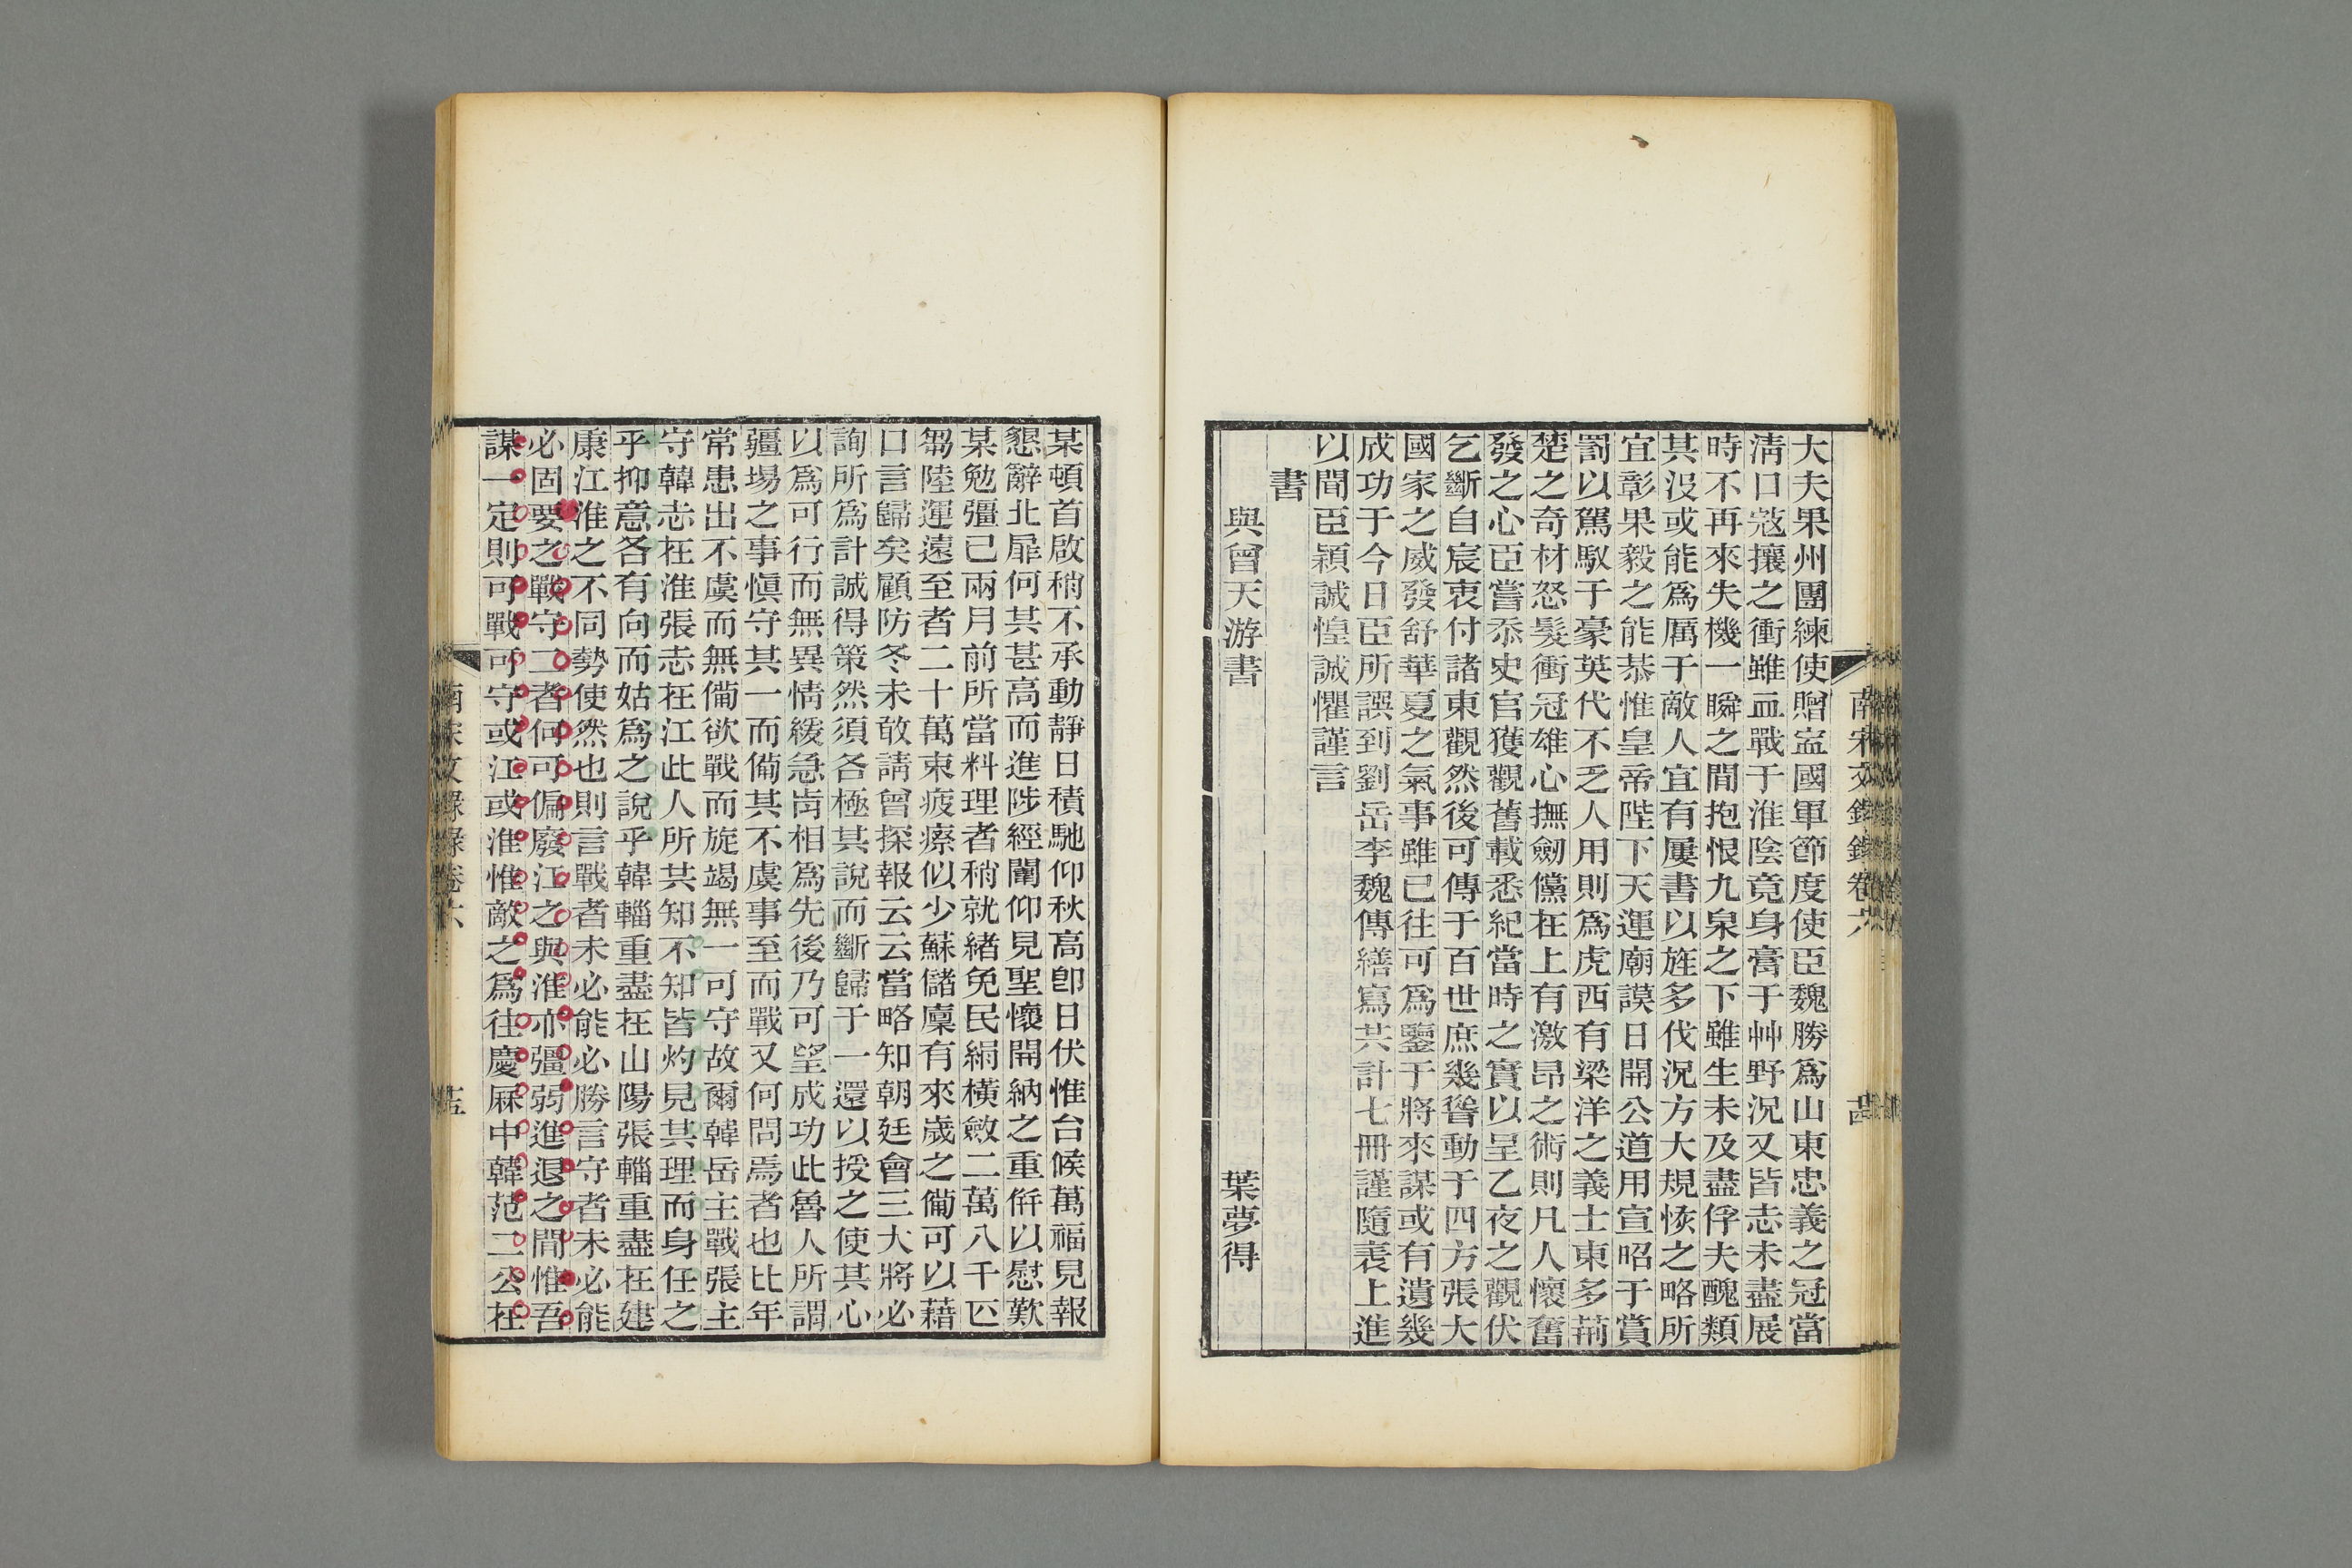 大夫果州團練使贈寍國軍節度使臣魏勝爲山東忠義之冠當
淸口寇攘之衝雖血戰于淮陰竟身膏于艸野況又皆志未盡展
時不再來失機一瞬之閒抱恨九泉之下雖生未及盡俘夫醜類
其沒或能爲厲于敵人宜有屢書以旌多伐況方大規恢之略所
宜彰果毅之能恭惟皇帝陛下天運廟謨日開公道用宣昭于賞
罰以駕馭于豪英代不乏人用則爲虎西有梁洋之義士東多荊
楚之奇材怒髮衝冠雄心撫劒儻在上有激昂之術則凡人懷奮
發之心臣嘗忝史官獲觀舊載悉紀當時之實以呈乙夜之觀伏
乞斷自宸衷付諸東觀然後可傳于百世庶幾聳動于四方張大
國家之威發舒華夏之氣事雖已往可爲鑒于將來謀或有遺幾
成功于今日臣所譔到劉岳李魏傳繕寫共計七冊謹隨表上進
以聞臣穎誠惶誠懼謹言
書
與曾天游書 葉夢得
南宋文錄錄卷六 十四
某頓首啟稍不承動靜日積馳仰秋高卽日伏惟台候萬福見報
懇辭北扉何其甚高而進陟經闈仰見聖懷開納之重倂以慰歎
某勉彊已兩月前所當料理者稍就緒免民絹橫斂二萬八千匹
芻陸運遠至者二十萬束疲瘵似少蘇儲廩有來歲之僃可以藉
口言歸矣顧防冬未敢請曾探報云云當略知朝廷會三大將必
詢所爲計誠得策然須各極其說而斷歸于一還以授之使其心
以爲可行而無異情緩急肯相爲先後乃可望成功此魯人所謂
疆埸之事愼守其一而僃其不虞事至而戰又何問焉者也比年
常患出不虞而無僃欲戰而旋竭無一可守故爾韓岳主戰張主
守韓志在淮張志在江此人所共知不知皆灼見其理而身任之
乎抑意各有向而姑爲之說乎韓輜重盡在山陽張輜重盡在建
康江淮之不同勢使然也則言戰者未必能必勝言守者未必能
必固要之戰守二者何可偏廢江之與淮亦彊弱進退之閒惟吾
謀一定則可戰可守或江或淮惟敵之爲往慶厤中韓范二公在
南宋文錄錄卷六 十五